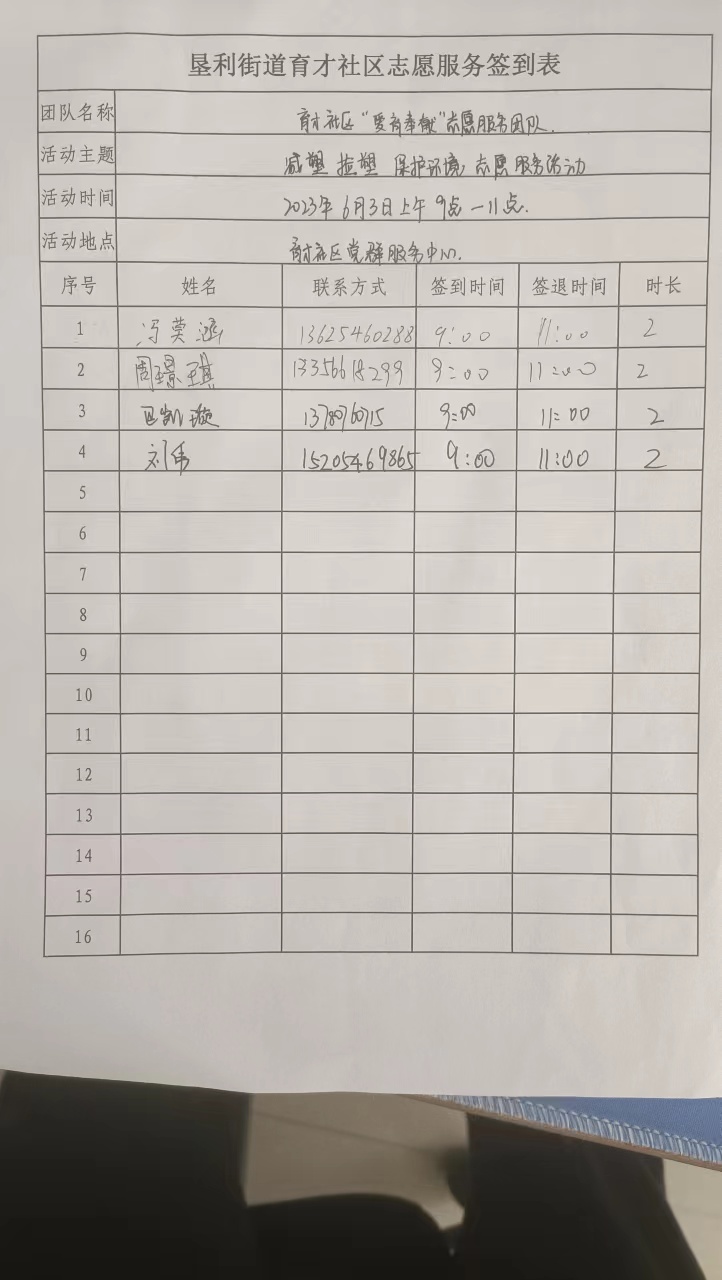 垦利街道育才社区志愿服务签到表
团队名称 育才社区“爱有奉献”志愿服务团队.
活动主题 减塑 捡塑 保护环境 志愿服务活动
活动时间 2023年6月3日上午9点-11点.
活动地点 育才社区党群服务中心.
序号 姓名 联系方式 签到时间 签退时间 时长
1 冯荧涵 13625460288 9:00 11:00 2
2 周璟琪 13356618299 9:00 11:00 2
3 凯璇 9:00 11:00 2
4 刘伟 15205469865 9:00 11:00 2
5
6
7
8
9
10
11
12
13
14
15
16